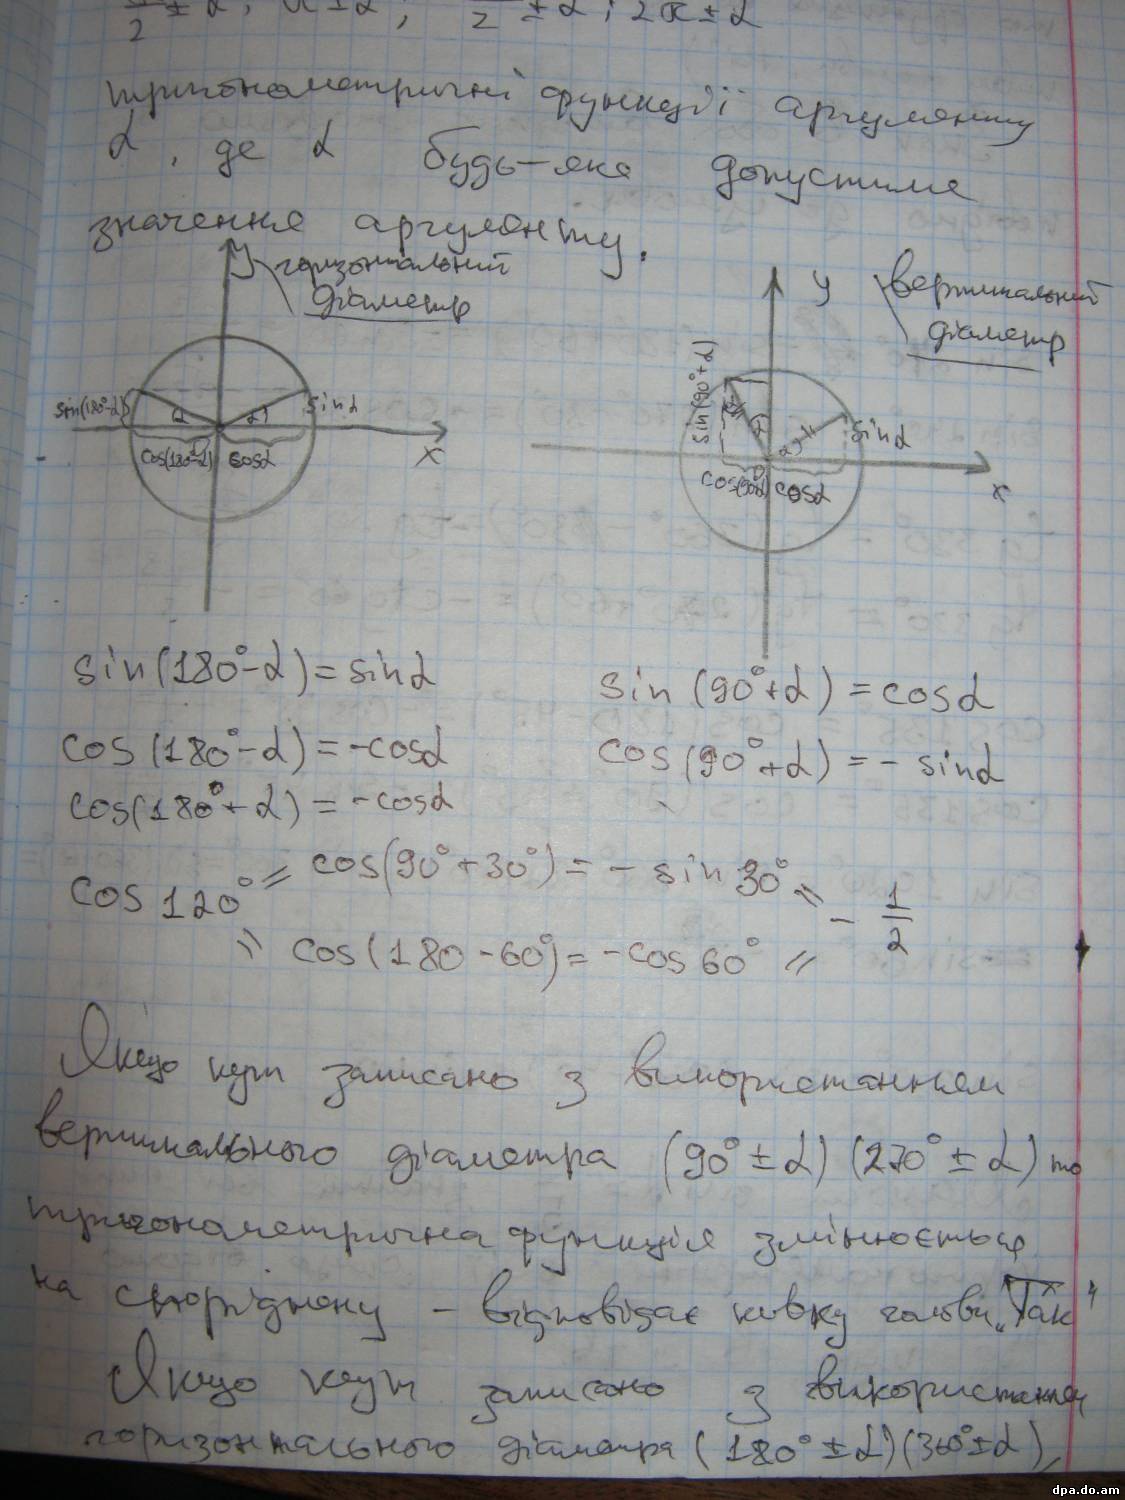 π/2 ± α; π ± α; /2 ± α; 2π ± α
тригонометричні функції аргументу
α, де α будь-яке допустиме
значення аргументу.
y горизонтальний
діаметр
sin(180°-α) α α sinα
cos(180°-α) cosα
x
y вертикальний
діаметр
sin(90°+α)
α α sinα
cos(90°+α) cosα
x
sin(180°-α) = sinα
cos(180°-α) = -cosα
cos(180°+α) = -cosα
sin(90°+α) = cosα
cos(90°+α) = - sinα
cos 120° = cos(90°+30°) = - sin 30° = - 1/2
= cos(180-60°) = -cos 60° =
Якщо кут записано з використанням
вертикального діаметра (90° ± α) (270° ± α) то
тригонометрична функція змінюється
на споріднену - відповідає кивку голови „Так"
Якщо кут записано з використанням
горизонтального діаметра (180° ± α) (360° ± α),
dpa.do.am